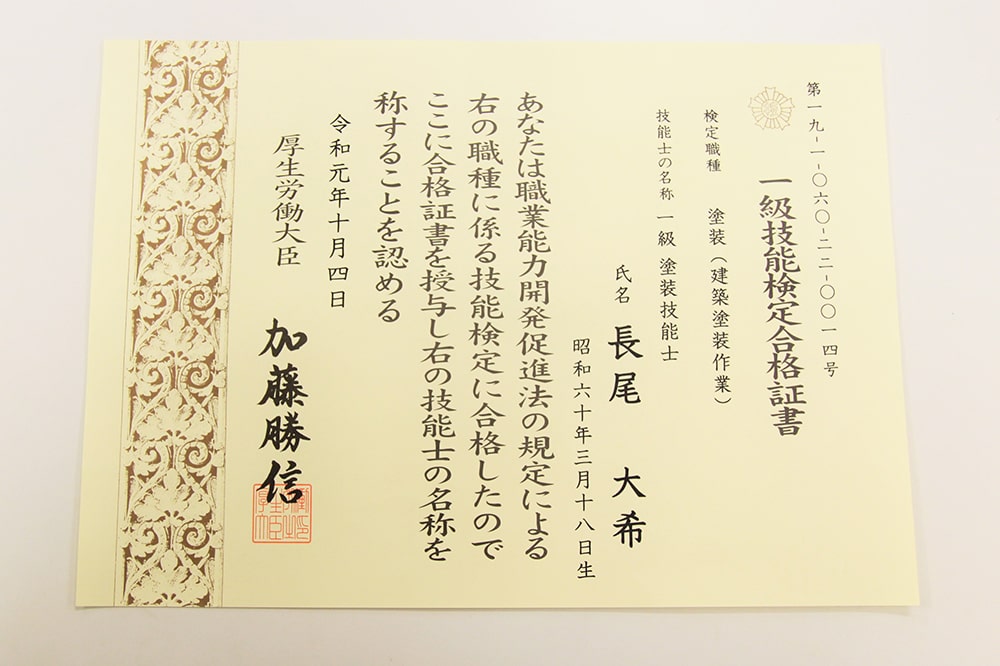 第一九-一-〇六〇-二二-〇〇一四号
一級技能検定合格証書
検定職種　塗装（建築塗装作業）
技能士の名称　一級 塗装技能士
氏名　長尾　大希
昭和六十年三月十八日生
あなたは職業能力開発促進法の規定による
右の職種に係る技能検定に合格したので
ここに合格証書を授与し右の技能士の名称を
称することを認める
令和元年十月四日
厚生労働大臣　加藤勝信